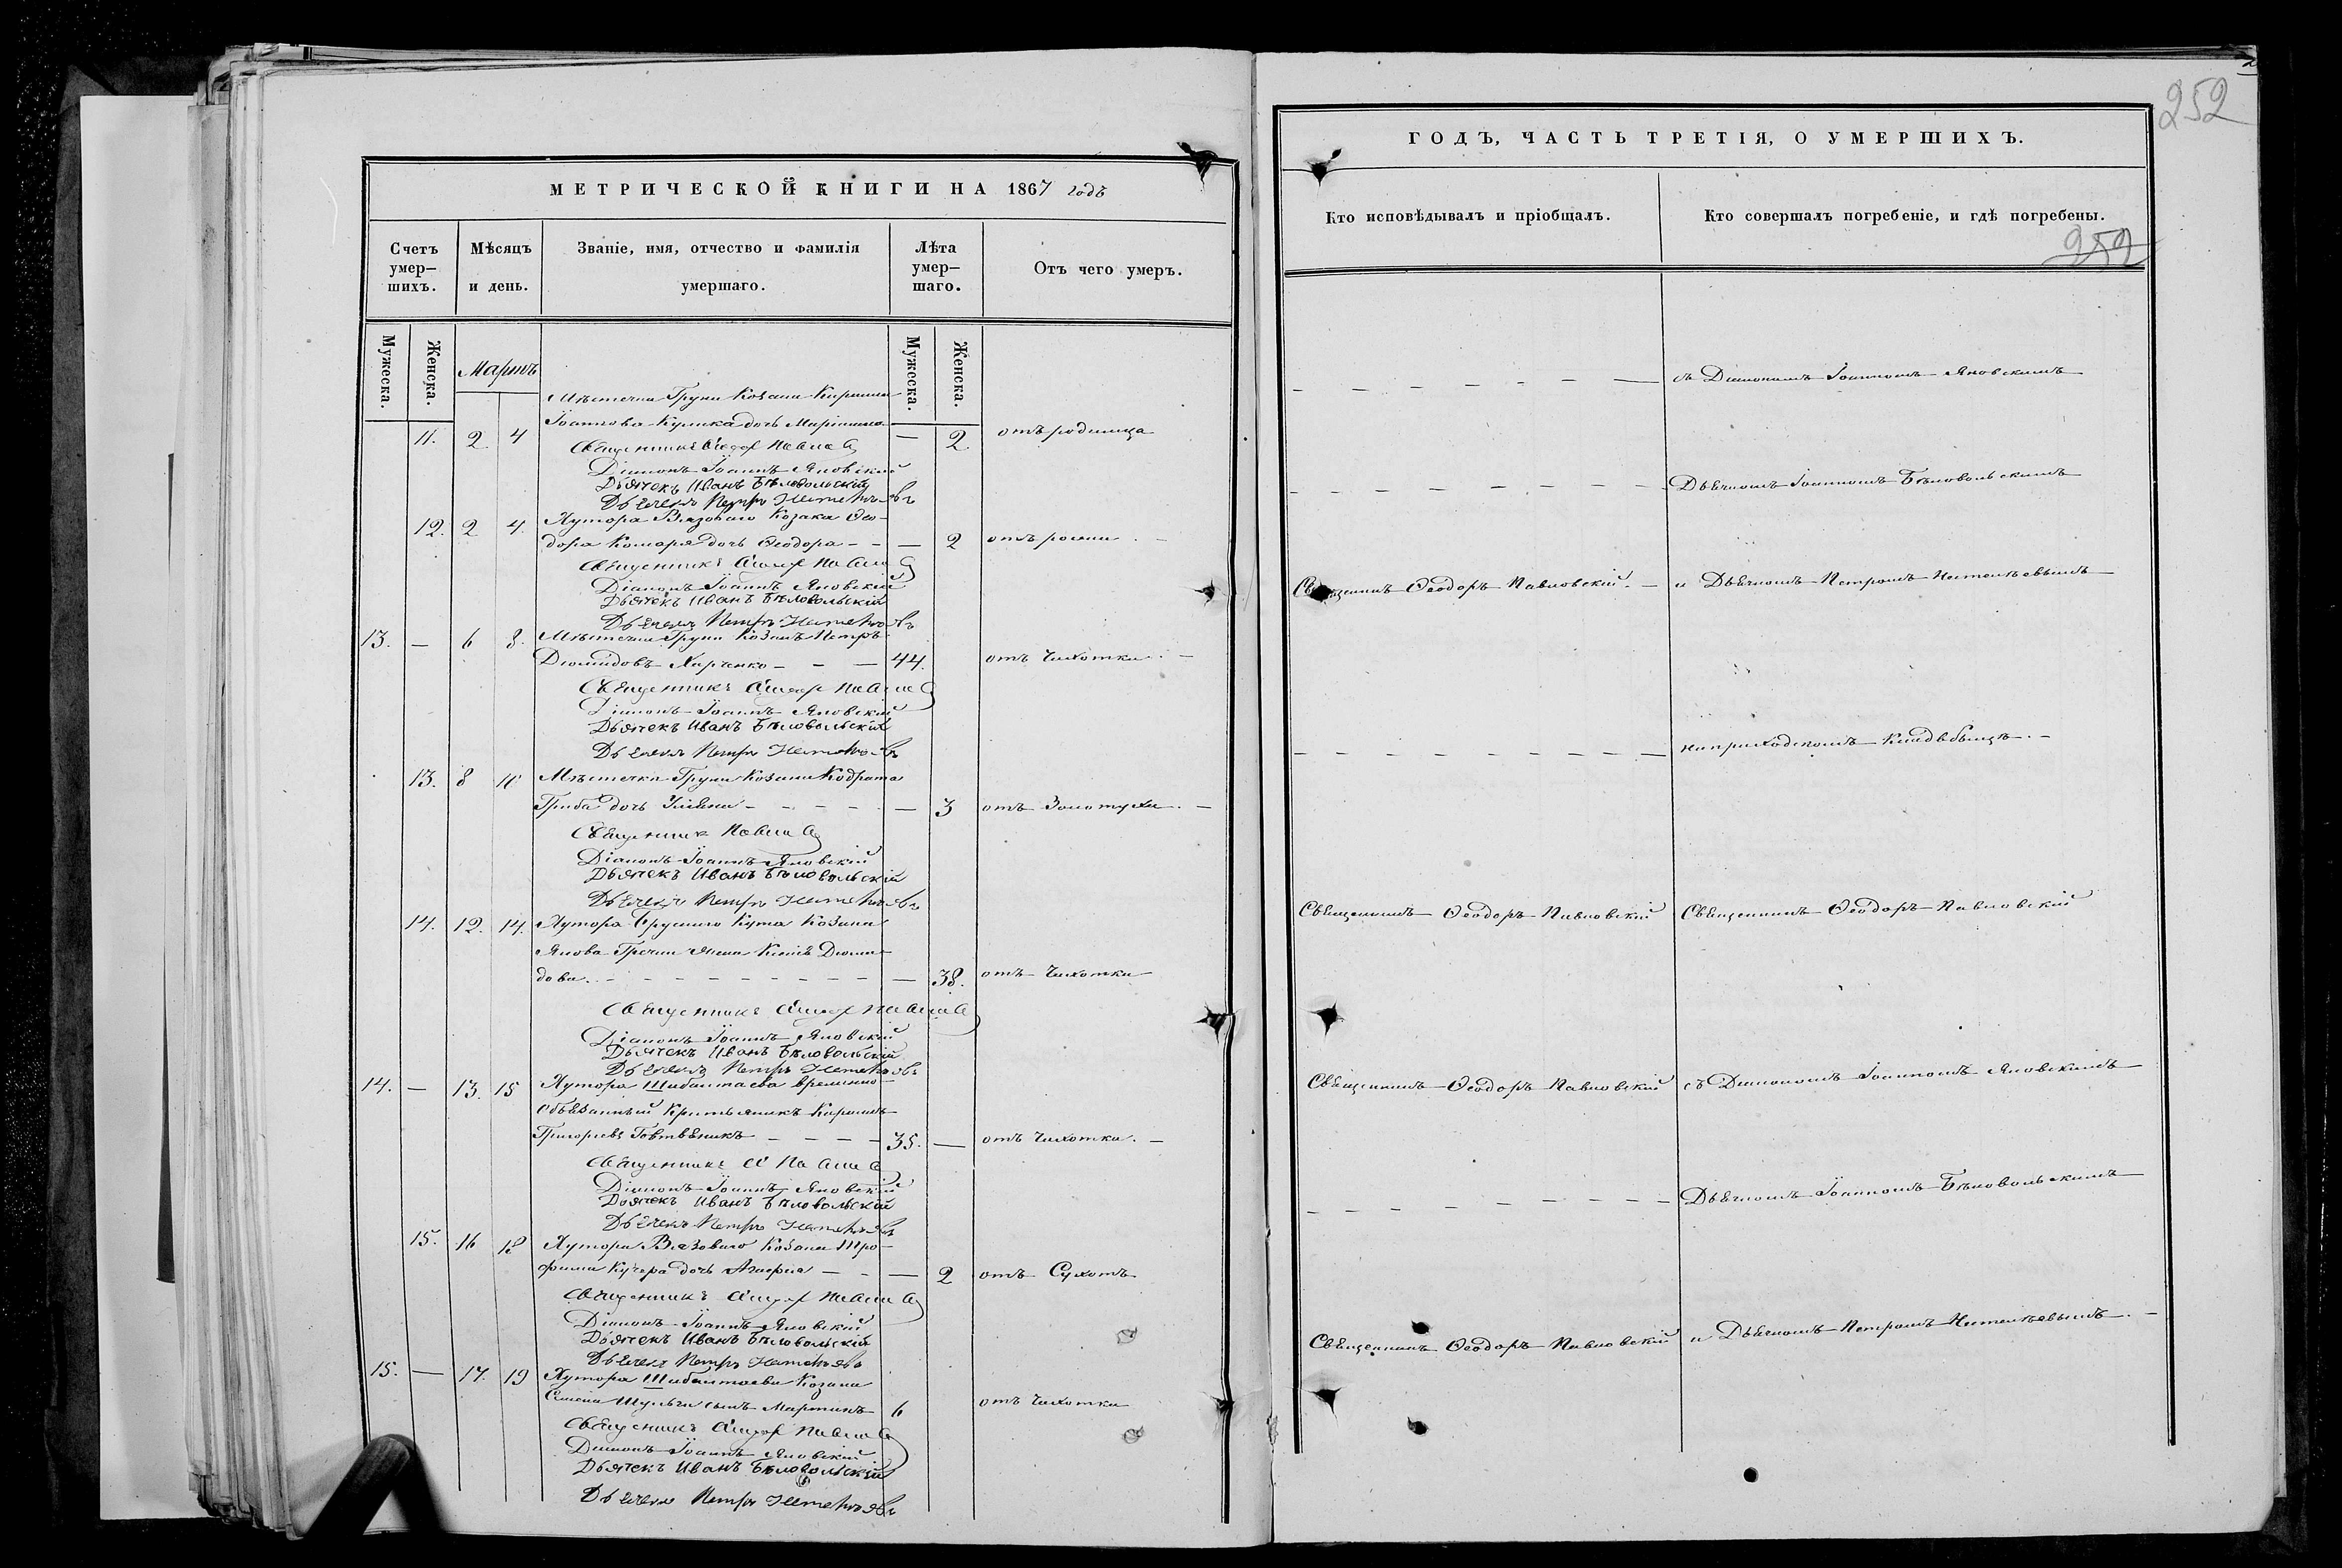 МЕТРИЧЕСКОЙ КНИГИ НА 1867 годъ
Счетъ умер–шихъ.
Мѣсяцъ и день.
Званіе, имя, отчество и фамилія умершаго.
Лѣта умер–шаго.
Отъ чего умеръ.
Мужеска.
Женска.
Мартъ
Мужеска.
Женска.
Мѣстечка Груни Козака Кирилла
11. 2 4 Іоаннова Кулика дочь Маріанна — 2. отъ родимца
Священникъ Ѳеодоръ Павловскій
Діаконъ Іоаннъ Яновскій
Дьячекъ Иванъ Бѣловольскій
Дьячекъ Петръ
12. 2 4. Хутора Вязоваго Козака Ѳео–
дора Комаря дочь Ѳеодора — — 2 отъ
Священникъ Ѳеодоръ Павловскій
Діаконъ Іоаннъ Яновскій
Дьячекъ Иванъ Бѣловольскій
Дьячекъ Петръ
13. — 6 8. Мѣстечка Груни Козакъ Петръ
Діомидовъ Харченко — — — 44. отъ Чихотки. —
Священникъ Ѳеодоръ Павловскій
Діаконъ Іоаннъ Яновскій
Дьячекъ Иванъ Бѣловольскій
Дьячекъ Петръ
13. 8 10 Мѣстечка Груни Козака Кодрата
Гриба дочь Уліяна — — — — — 3 отъ Золотухи. —
Священникъ Павловскій
Діаконъ Іоаннъ Яновскій
Дьячекъ Иванъ Бѣловольскій
Дьячекъ Петръ
14. 12. 14. Хутора Кута Козака
Якова Гречки жена Ксенія Діоми–
дова. — — — — — — 38. отъ Чихотки
Священникъ Ѳеодоръ Павловскій
Діаконъ Іоаннъ Яновскій
Дьячекъ Иванъ Бѣловольскій
Дьячекъ Петръ
14. — 13. 15 Хутора Шибалтаева временно
обязанный Крестьянинъ Кириллъ
Григорьевъ — — — — 35. — отъ Чихотки. —
Священникъ Ѳ Павловскій
Діаконъ Іоаннъ Яновскій
Дьячекъ Иванъ Бѣловольскій
Дьячекъ Петръ
15. 16 18 Хутора Вязоваго Козака Тро–
фима Кучера дочь — — — 2 отъ Сухотъ
Священникъ Ѳеодоръ Павловскій
Діаконъ Іоаннъ Яновскій
Дьячекъ Иванъ Бѣловольскій
Дьячекъ Петръ
15. — 17. 19 Хутора Шибалтаева Козака
Семена Шульги сынъ Мартинъ 6 отъ Чихотки
Священникъ Ѳеодоръ Павловскій
Діаконъ Іоаннъ Яновскій
Дьячекъ Иванъ Бѣловольскій
Дьячекъ Петръ
252
ГОДЪ, ЧАСТЬ ТРЕТІЯ, О УМЕРШИХЪ.
Кто исповѣдывалъ и пріобщалъ.
Кто совершалъ погребеніе, и гдѣ погребены.
252
— — — — — — — съ Діакономъ Іоанномъ Яновскимъ
— — — — — — — — Дьячкомъ Іоанномъ Бѣловольскимъ
Священникъ Ѳеодоръ Павловскій. — и Дьячкомъ Петромъ
— — — — — — — — на приходскомъ Кладбищѣ. —
Священникъ Ѳеодоръ Павловскій Священникъ Ѳеодоръ Павловскій
Священникъ Ѳеодоръ Павловскій съ Діакономъ Іоанномъ Яновскимъ
— — — — — — — — Дьячкомъ Іоанномъ Бѣловольскимъ
Священникъ Ѳеодоръ Павловскій и Дьячкомъ Петромъ